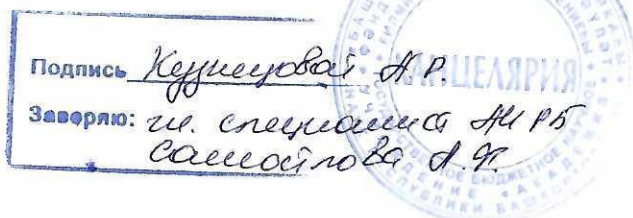 Подпись Кузнецовой А.Р.
Заверяю: гл. специалист АН РБ
Самойлова А.Ф.
КАНЦЕЛЯРИЯ